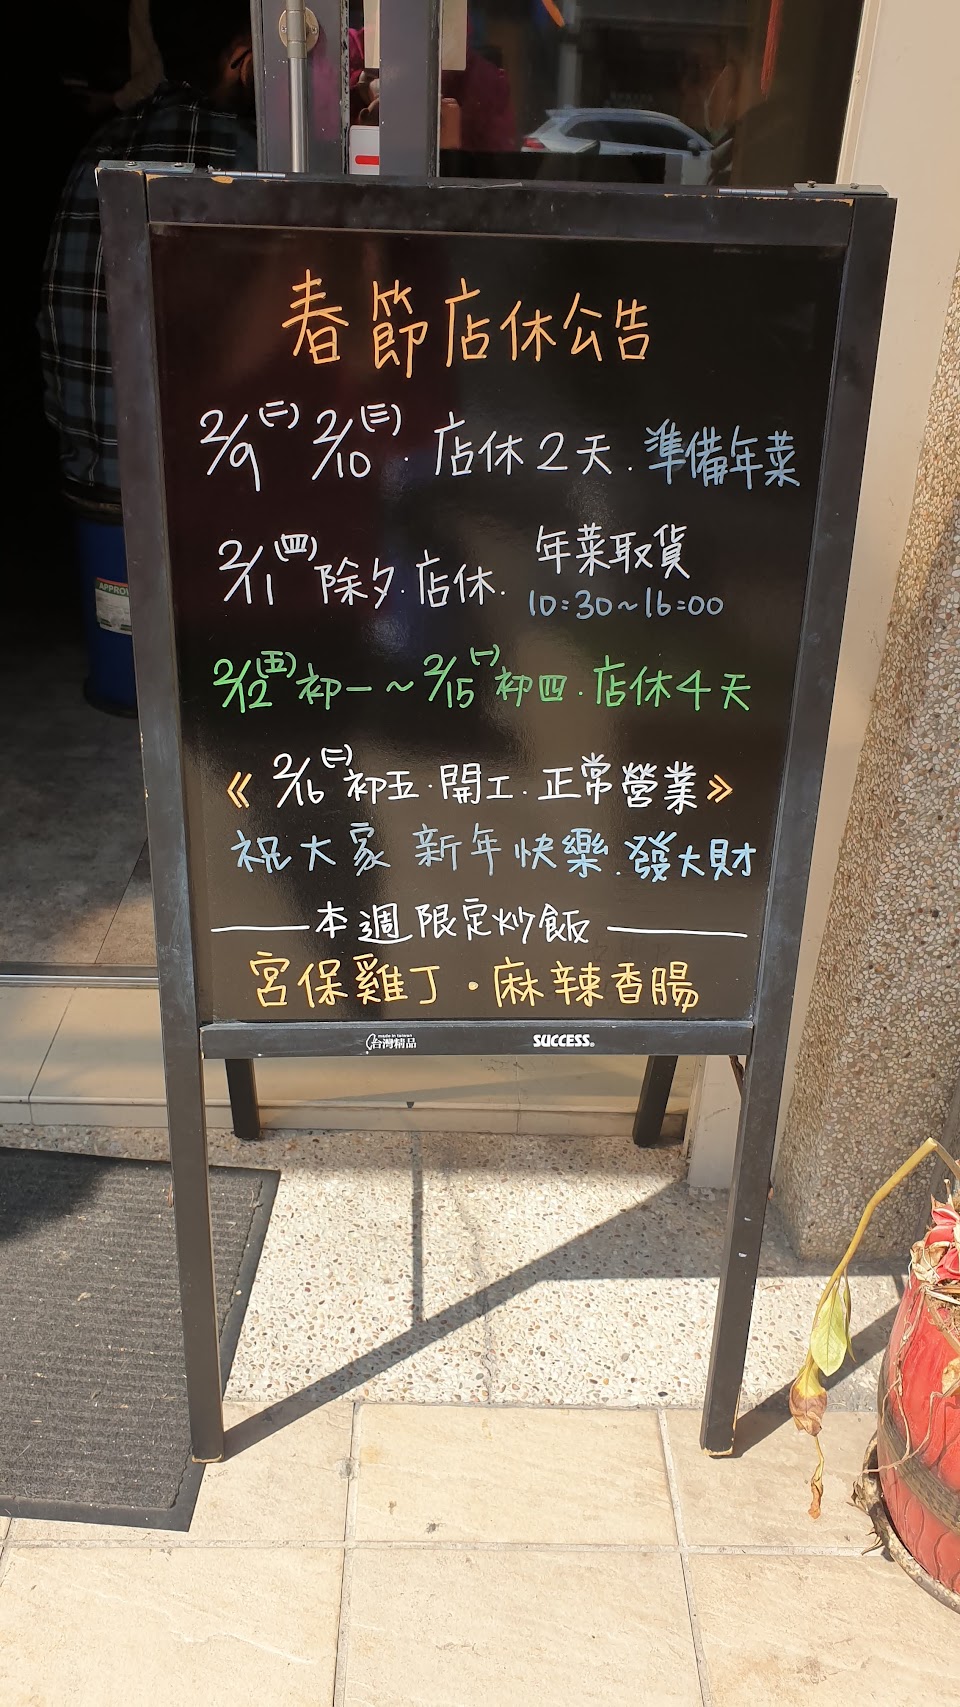 春節店休公告
2/9(二) 2/10(三)．店休2天．準備年菜
2/11(四)除夕．店休．年菜取貨
10:30~16:00
2/12(五)初一~2/15(一)初四．店休4天
《2/16(二)初五．開工．正常營業》
祝大家 新年快樂．發大財
本週限定炒飯
宮保雞丁．麻辣香腸
made in taiwan
台灣精品
SUCCESS®
APPROV